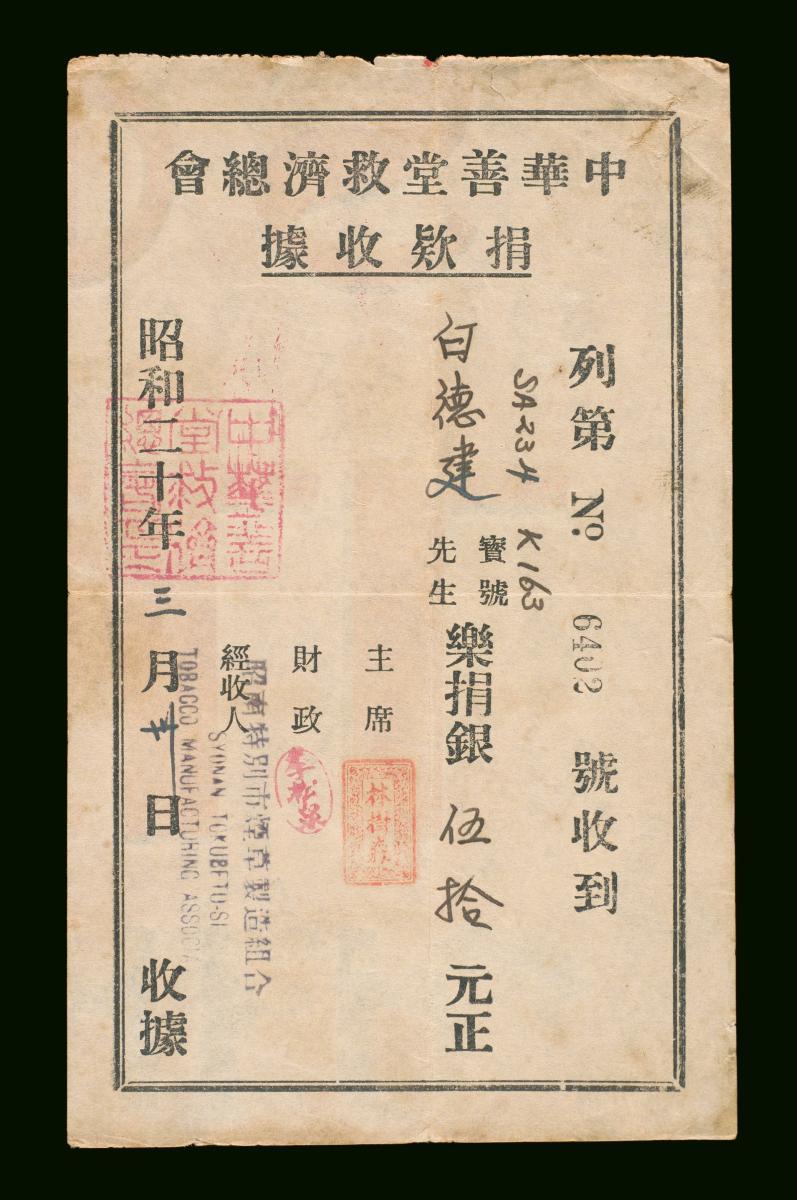 中華善堂救濟總會
捐欵收據
列第 No. 6402 號收到
SA234 K163
寶號
白德建 先生
樂捐銀 伍拾 元正
主席
林樹彥
財政
經收人
昭南特別市煙草製造組合
SYONAN TOKUBETU-SI
TOBACCO MANUFACTURING ASSOCIA
昭和二十年 三 月 廿 日 收據